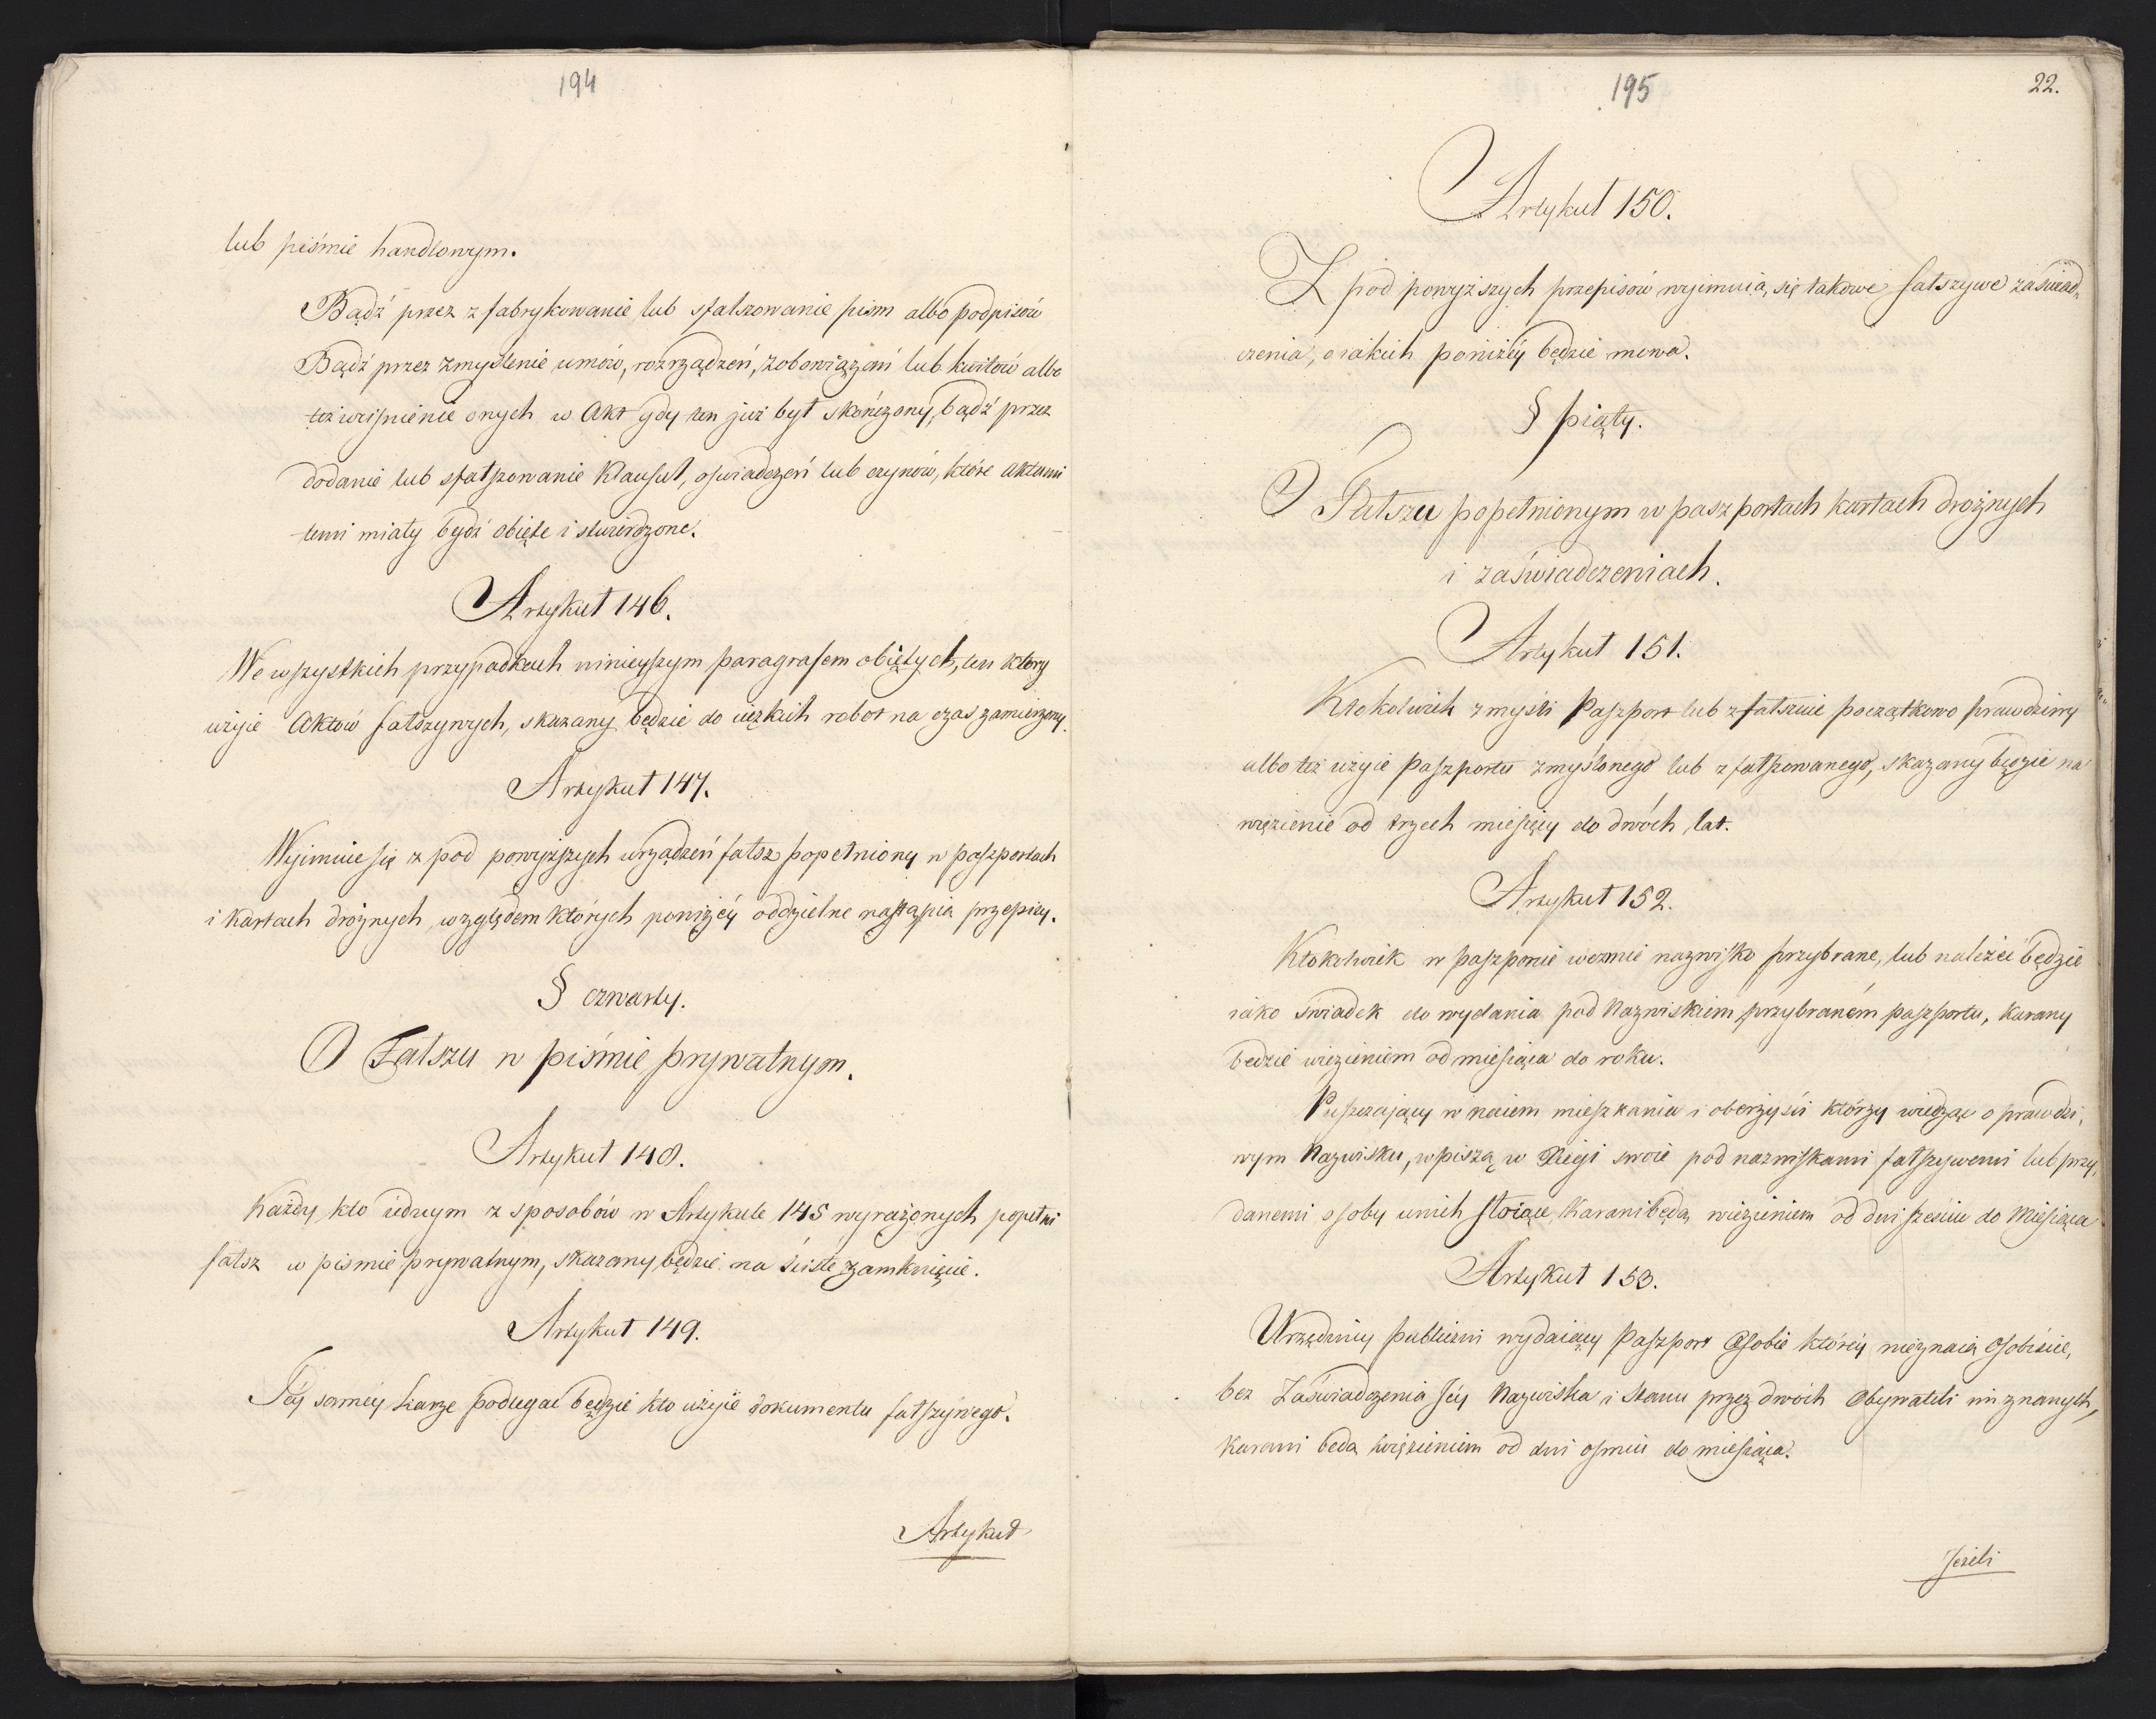 194
lub piśmie handlowym.
Bądź przez zfabrykowanie lub sfalszowanie pism albo podpisów
Bądź przez zmyślenie umów, rozrządzeń, zobowiązań lub kwitów albo
też wcisnienie onych w Akt gdy ten już był skończony, bądź przez
dodanie lub sfałszowanie Klauzuł, oswiadczeń lub czynów, które aktami
temi miały bydź obięte i stwierdzone.
Artykuł 146.
We wszystkich przypadkach ninieyszym paragrafem obiętych, ten który
użyie Aktów fałszywych, skazany będzie do ciężkich robot na czas zamierzony.
Artykuł 147.
Wyimuie się z pod powyższych urządzeń fałsz popełniony w paszportach
i kartach drożnych, względem których poniżéy oddzielne nastąpią przepisy.
§ czwarty.
O Fałszu w piśmie prywatnym.
Artykuł 148.
Każdy kto iednym z sposobów w Artykule 145 wyrażonych popełni
fałsz w pismie prywatnym, skazany będzie na ścisłe zamknięcie.
Artykuł 149.
Téy saméy karze podlegać będzie kto użyie dokumentu fałszywego.
Artykuł
195
22.
Artykuł 150.
Z pod powyższych przepisów wyimuią się takowe fałszywe zaświad„
czenia, o iakich poniżéy będzie mowa.
§ piąty.
O Fałszu popełnionym w paszportach kartach drożnych
i zaświadczeniach.
Artykuł 151.
Ktokolwiek zmyśli Paszport lub zfałszuie początkowo prawdziwy
albo też użyie Paszportu zmyślonego lub zfałszowanego, skazany będzie na
więzienie od trzech miesięcy do dwóch lat.
Artykuł 152.
Ktokolwiek w paszporcie weźmie nazwisko przybrane, lub należéć będzie
iako świadek do wydania pod Nazwiskiem przybraném paszportu, karany
będzie więzieniem od miesiąca do roku.
Puszczaiący w naiem mieszkania i oberżyści którzy wiedząc o prawdzi„
wym Nazwisku, wpiszą w Xięgi swoie pod nazwiskami fałszywemi lub przy„
danemi osoby u nich stoiące, karani będą więzieniem od dni sześciu do Miesiąca
Artykuł 153.
Urzędnicy publiczni wydaiący Paszport Osobie któréy nieznaią Osobiście,
bez Zaświadczenia Jéy Nazwiska i Stanu przez dwóch Obywateli im znanych,
karani będą więzieniem od dni osmiu do miesiąca.
Jeżeli